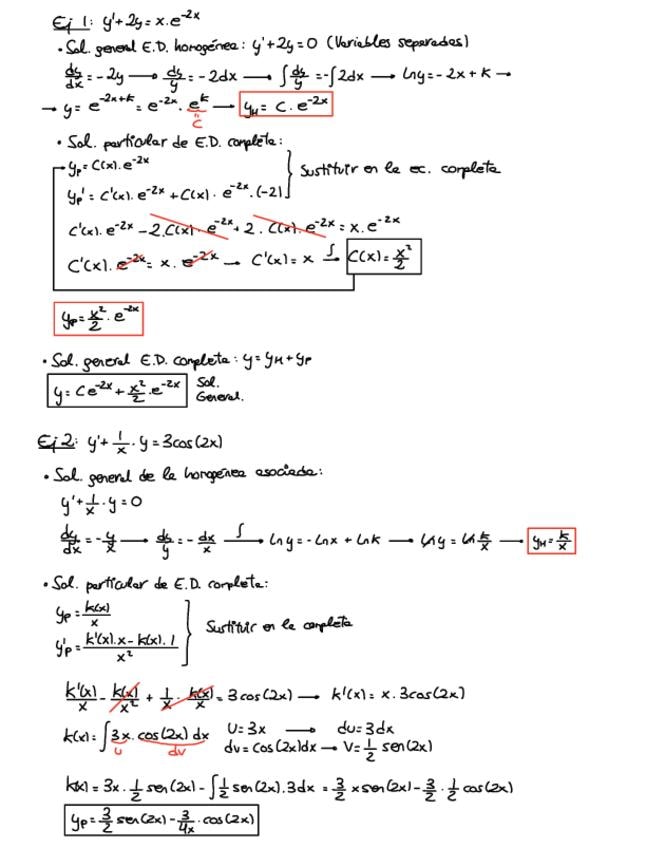 Ej 1: y'+2y = x.e^-2x
• Sol. general E.D. homogénea: y'+2y=0 (Variables separadas)
dy/dx = -2y → dy/y = -2dx → ∫dy/y = -∫2dx → lny = -2x+k →
→ y = e^-2x+k = e^-2x . e^k → y_H = C. e^-2x
= C
• Sol. particular de E.D. completa:
y_P = C(x).e^-2x
Sustituir en la ec. completa
y_P' = C'(x). e^-2x + C(x). e^-2x.(-2)
C'(x). e^-2x - 2.C(x). e^-2x + 2. C(x). e^-2x = x.e^-2x
C'(x). e^-2x = x. e^-2x → C'(x) = x ∫→ C(x) = x²/2
y_P = x²/2 . e^-2x
• Sol. general E.D. completa: y = y_H + y_P
y = Ce^-2x + x²/2 .e^-2x Sol. General.
Ej 2: y'+ 1/x . y = 3cos(2x)
• Sol. general de la homogénea asociada:
y'+ 1/x . y = 0
dy/dx = -y/x → dy/y = - dx/x ∫→ lny = -lnx + lnk → lny = ln k/x → y_H = k/x
• Sol. particular de E.D. completa:
y_P = k(x)/x
Sustituir en la completa
y'_P = k'(x).x - k(x).1/x²
k'(x)/x - k(x)/x² + 1/x . k(x)/x = 3cos(2x) → k'(x) = x.3cos(2x)
k(x) = ∫3x. cos(2x) dx U = 3x → dU = 3dx
u dv dv = cos(2x)dx → V = 1/2 sen(2x)
k(x) = 3x. 1/2 sen(2x) - ∫1/2 sen(2x).3dx = 3/2 x sen(2x) - 3/2 . 1/2 cos(2x)
y_P = 3/2 sen(2x) - 3/4x . cos(2x)